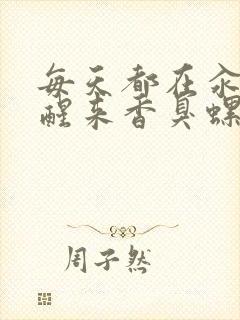 每天都在汆
醒来香臭螺
周子然